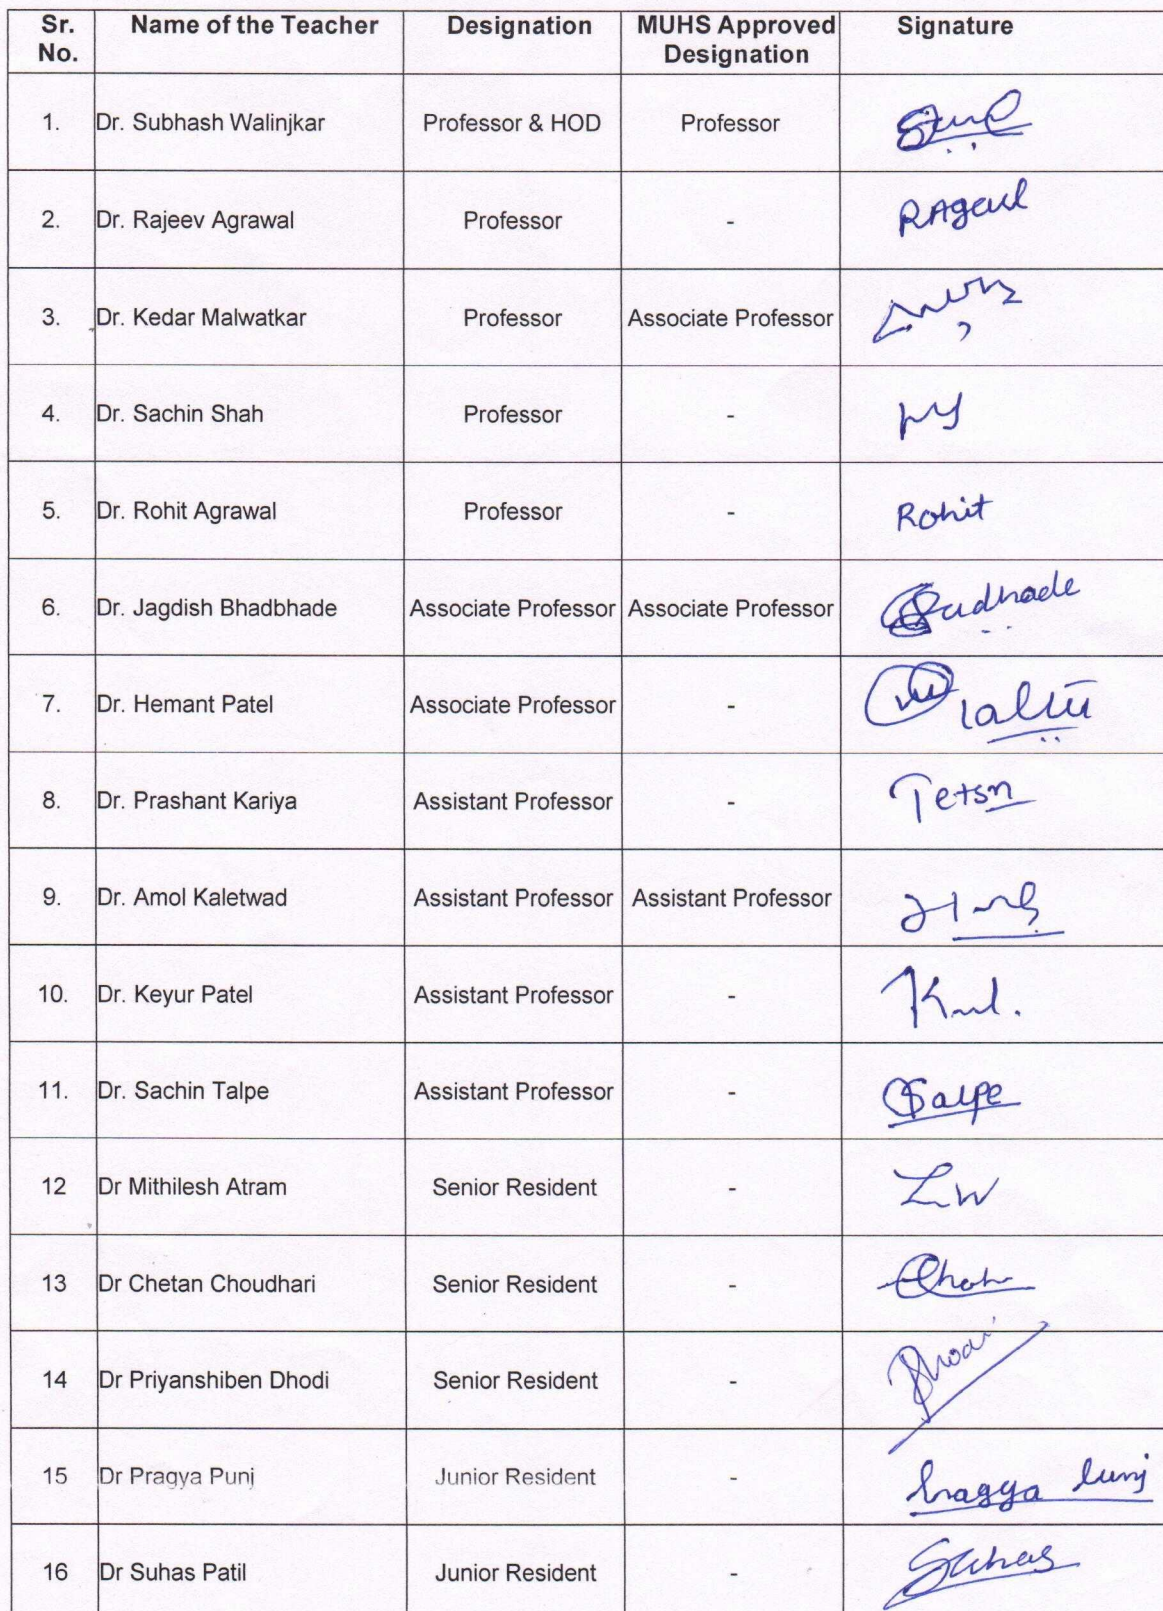 Sr. No. Name of the Teacher Designation MUHS Approved Designation Signature
1. Dr. Subhash Walinjkar Professor & HOD Professor
2. Dr. Rajeev Agrawal Professor -
3. Dr. Kedar Malwatkar Professor Associate Professor
4. Dr. Sachin Shah Professor -
5. Dr. Rohit Agrawal Professor - Rohit
6. Dr. Jagdish Bhadbhade Associate Professor Associate Professor
7. Dr. Hemant Patel Associate Professor -
8. Dr. Prashant Kariya Assistant Professor -
9. Dr. Amol Kaletwad Assistant Professor Assistant Professor
10. Dr. Keyur Patel Assistant Professor -
11. Dr. Sachin Talpe Assistant Professor -
12 Dr Mithilesh Atram Senior Resident -
13 Dr Chetan Choudhari Senior Resident -
14 Dr Priyanshiben Dhodi Senior Resident -
15 Dr Pragya Punj Junior Resident -
16 Dr Suhas Patil Junior Resident - Suhas